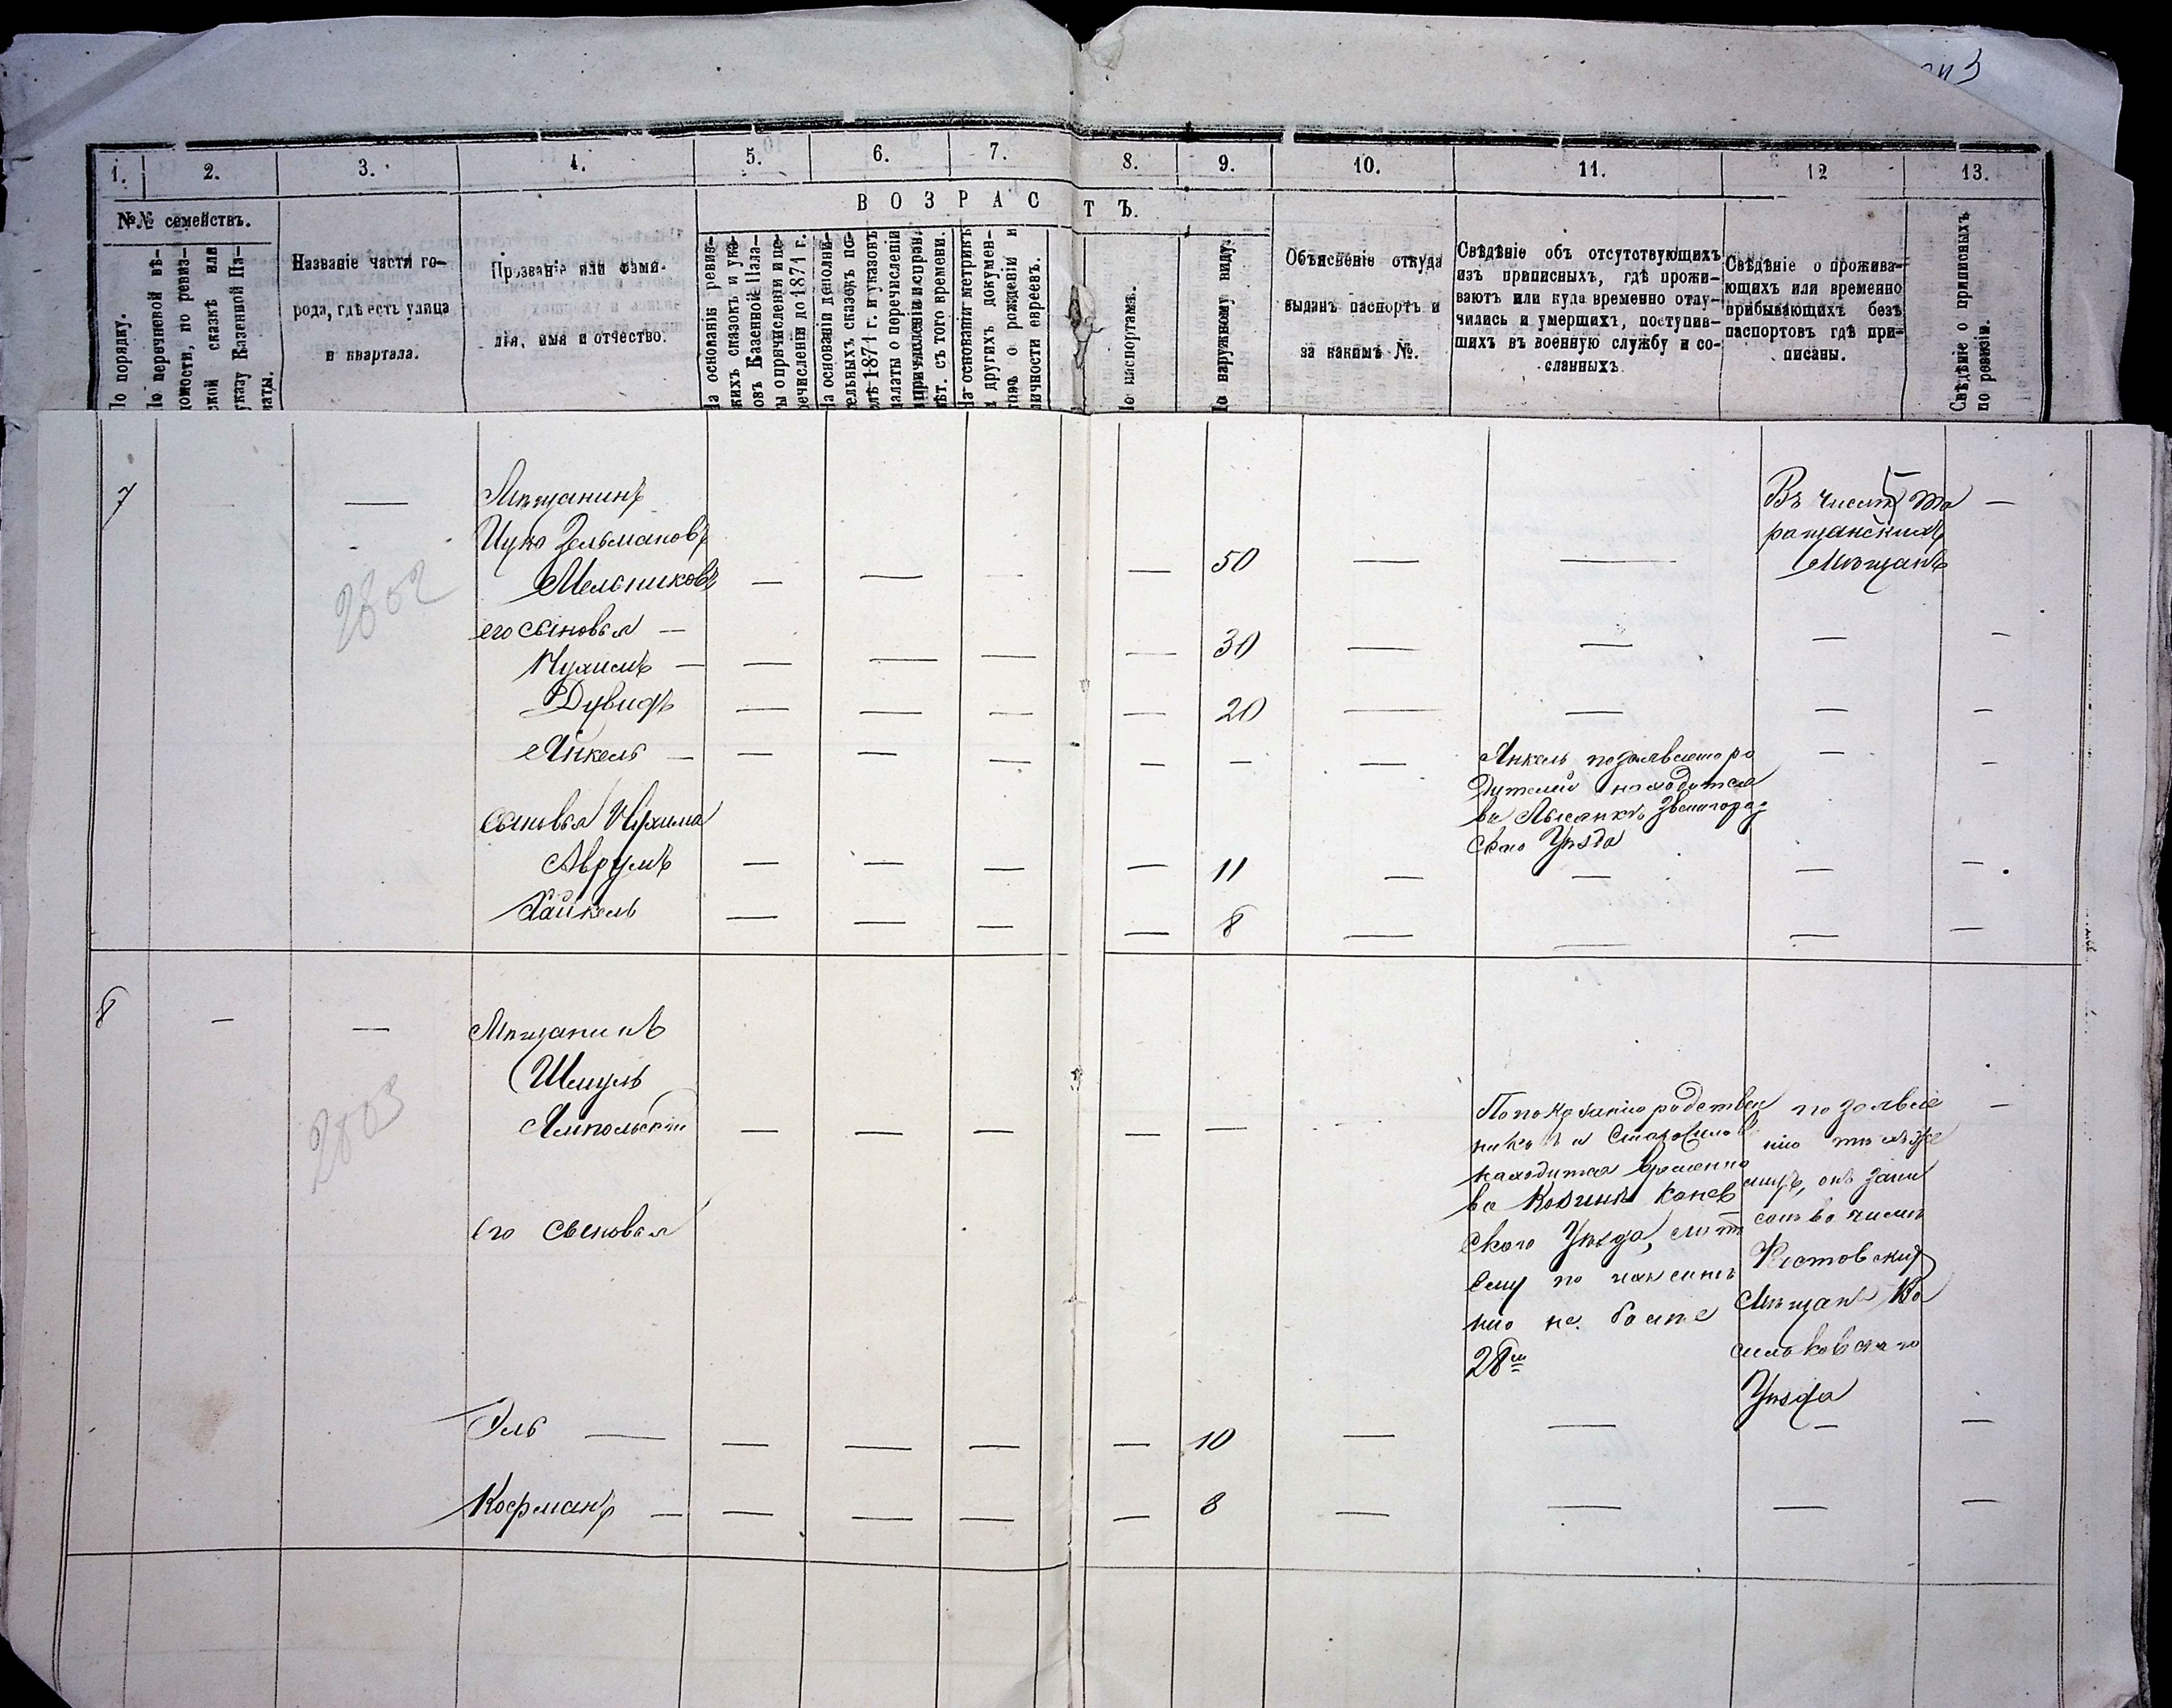 1.
2.
3.
4.
5.
6.
7.
8.
9.
10.
11.
12
13.
№№ семействъ.
ВОЗРАСТЪ.
По порядку.
По перечневой вѣ-
домости, по ревиз-
ской сказкѣ или
указу Казенной Па-
латы.
Названіе части го-
рода, гдѣ есть улица
и квартала.
Прозваніе или фами-
лія, имя и отчество.
На основаніи ревиз-
скихъ сказокъ и ука-
зовъ Казенной Пала-
ты о причисленіи и пе-
речисленіи до 1874 г.
На основаніи дополни-
тельныхъ сказокъ по-
слѣ 1874 г. и указовъ
палаты о перечисленіи
и причисленіи и исправ.
лѣт. съ того времени.
На основаніи метрикъ
и других докумен-
товъ о рожденіи и
личности евреевъ.
По паспортамъ.
По наружному виду.
Объясненіе откуда
выданъ паспортъ и
за какимъ №.
Свѣдѣніе объ отсутствующихъ
изъ приписныхъ, гдѣ прожи-
ваютъ или куда временно отлу-
чились и умершихъ, поступив-
шихъ въ военную службу и со-
сланныхъ
Свѣдѣніе о прожива-
ющихъ или временно
прибывающихъ безъ
паспортовъ гдѣ при-
писаны.
Свѣдѣніе о приписныхъ
по ревизіи.
7
Мѣщанинъ
Ицко Зельмановъ
Мельниковъ
50
Въ числѣ Та
ращанскихъ
Мѣщанъ
2802
его сыновья
Нухимъ
30
Дувидъ
20
Янкель
Янкель по заявленію ро
дителей находится
въ Лысянкѣ Звенигород
скаго Уѣзда
сыновья Нухима
Аврумъ
11
Хайкель
8
8
Мѣщанинъ
Шмуль
Ямпольскій
2803
По показанію родствен
никовъ и Старожилов
находится временно
въ Козинѣ Канев
скаго Уѣзда, лѣтъ
ему по
нію не болѣе
28
по заявле
нію тѣхъ же
лицъ, онъ запи
санъ въ числѣ
мѣщанъ Ва
сильковскаго
Уѣзда
его сыновья
Эль
10
Кофманъ
8